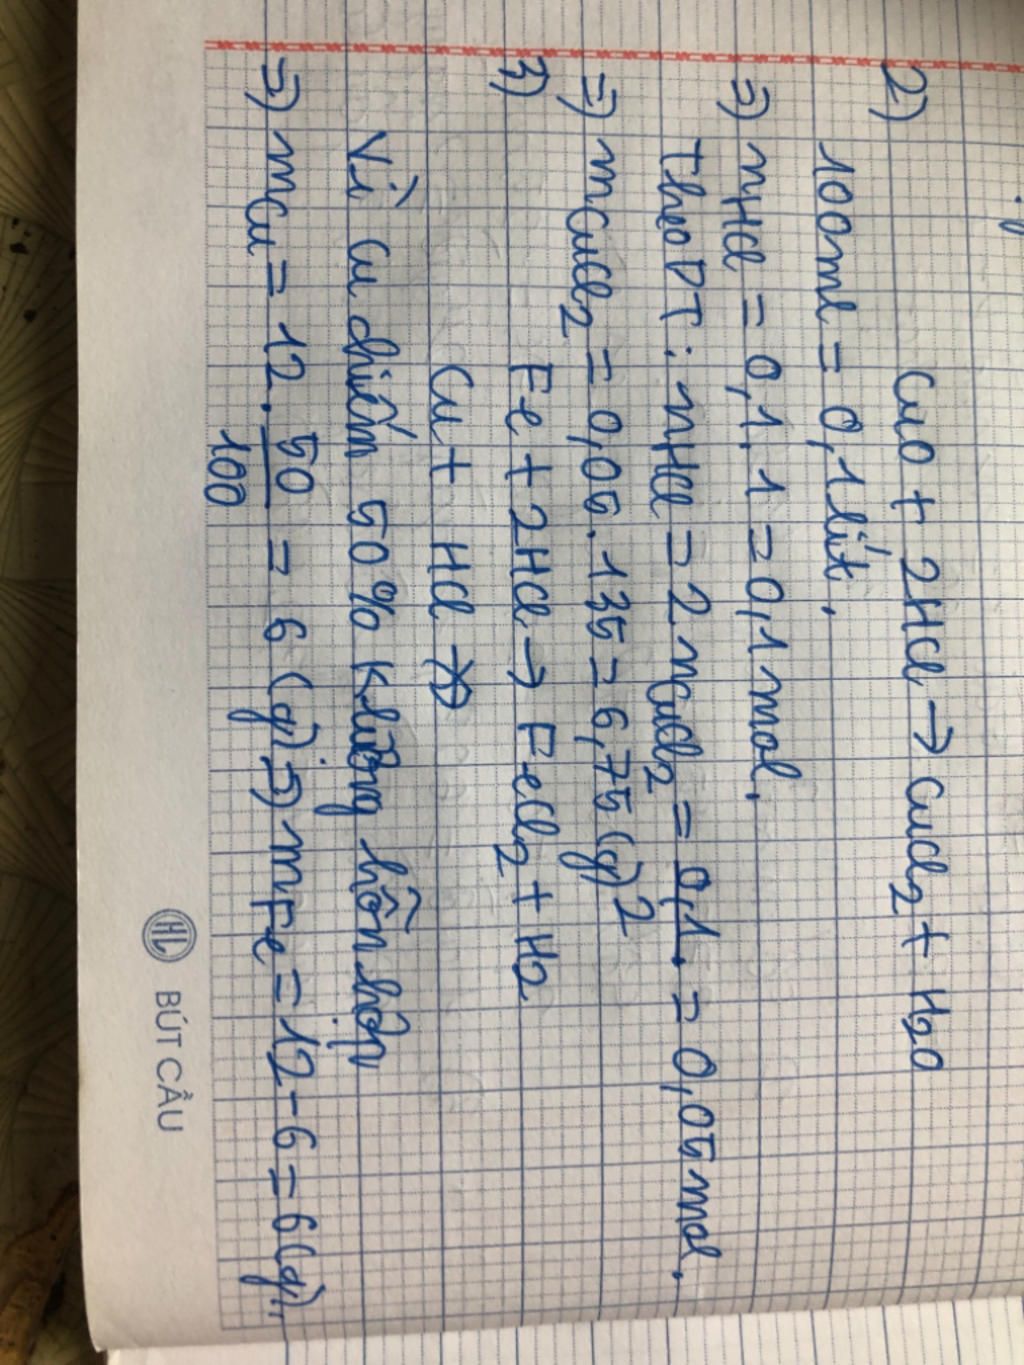 2) CuO + 2HCl → CuCl2 + H2O
100ml = 0,1 lít.
=) nHCl = 0,1.1 = 0,1 mol.
Theo PT: nHCl = 2nCuCl2 = 0,1. = 0,05 mol.
2
=) mCuCl2 = 0,05.135 = 6,75 (g)
3) Fe + 2HCl → FeCl2 + H2
Cu + HCl ↛
Vì Cu chiếm 50% klượng hỗn hợp
=) mCu = 12. 50 = 6 (g) =) mFe = 12 - 6 = 6(g),
100
HL BÚT CẦU